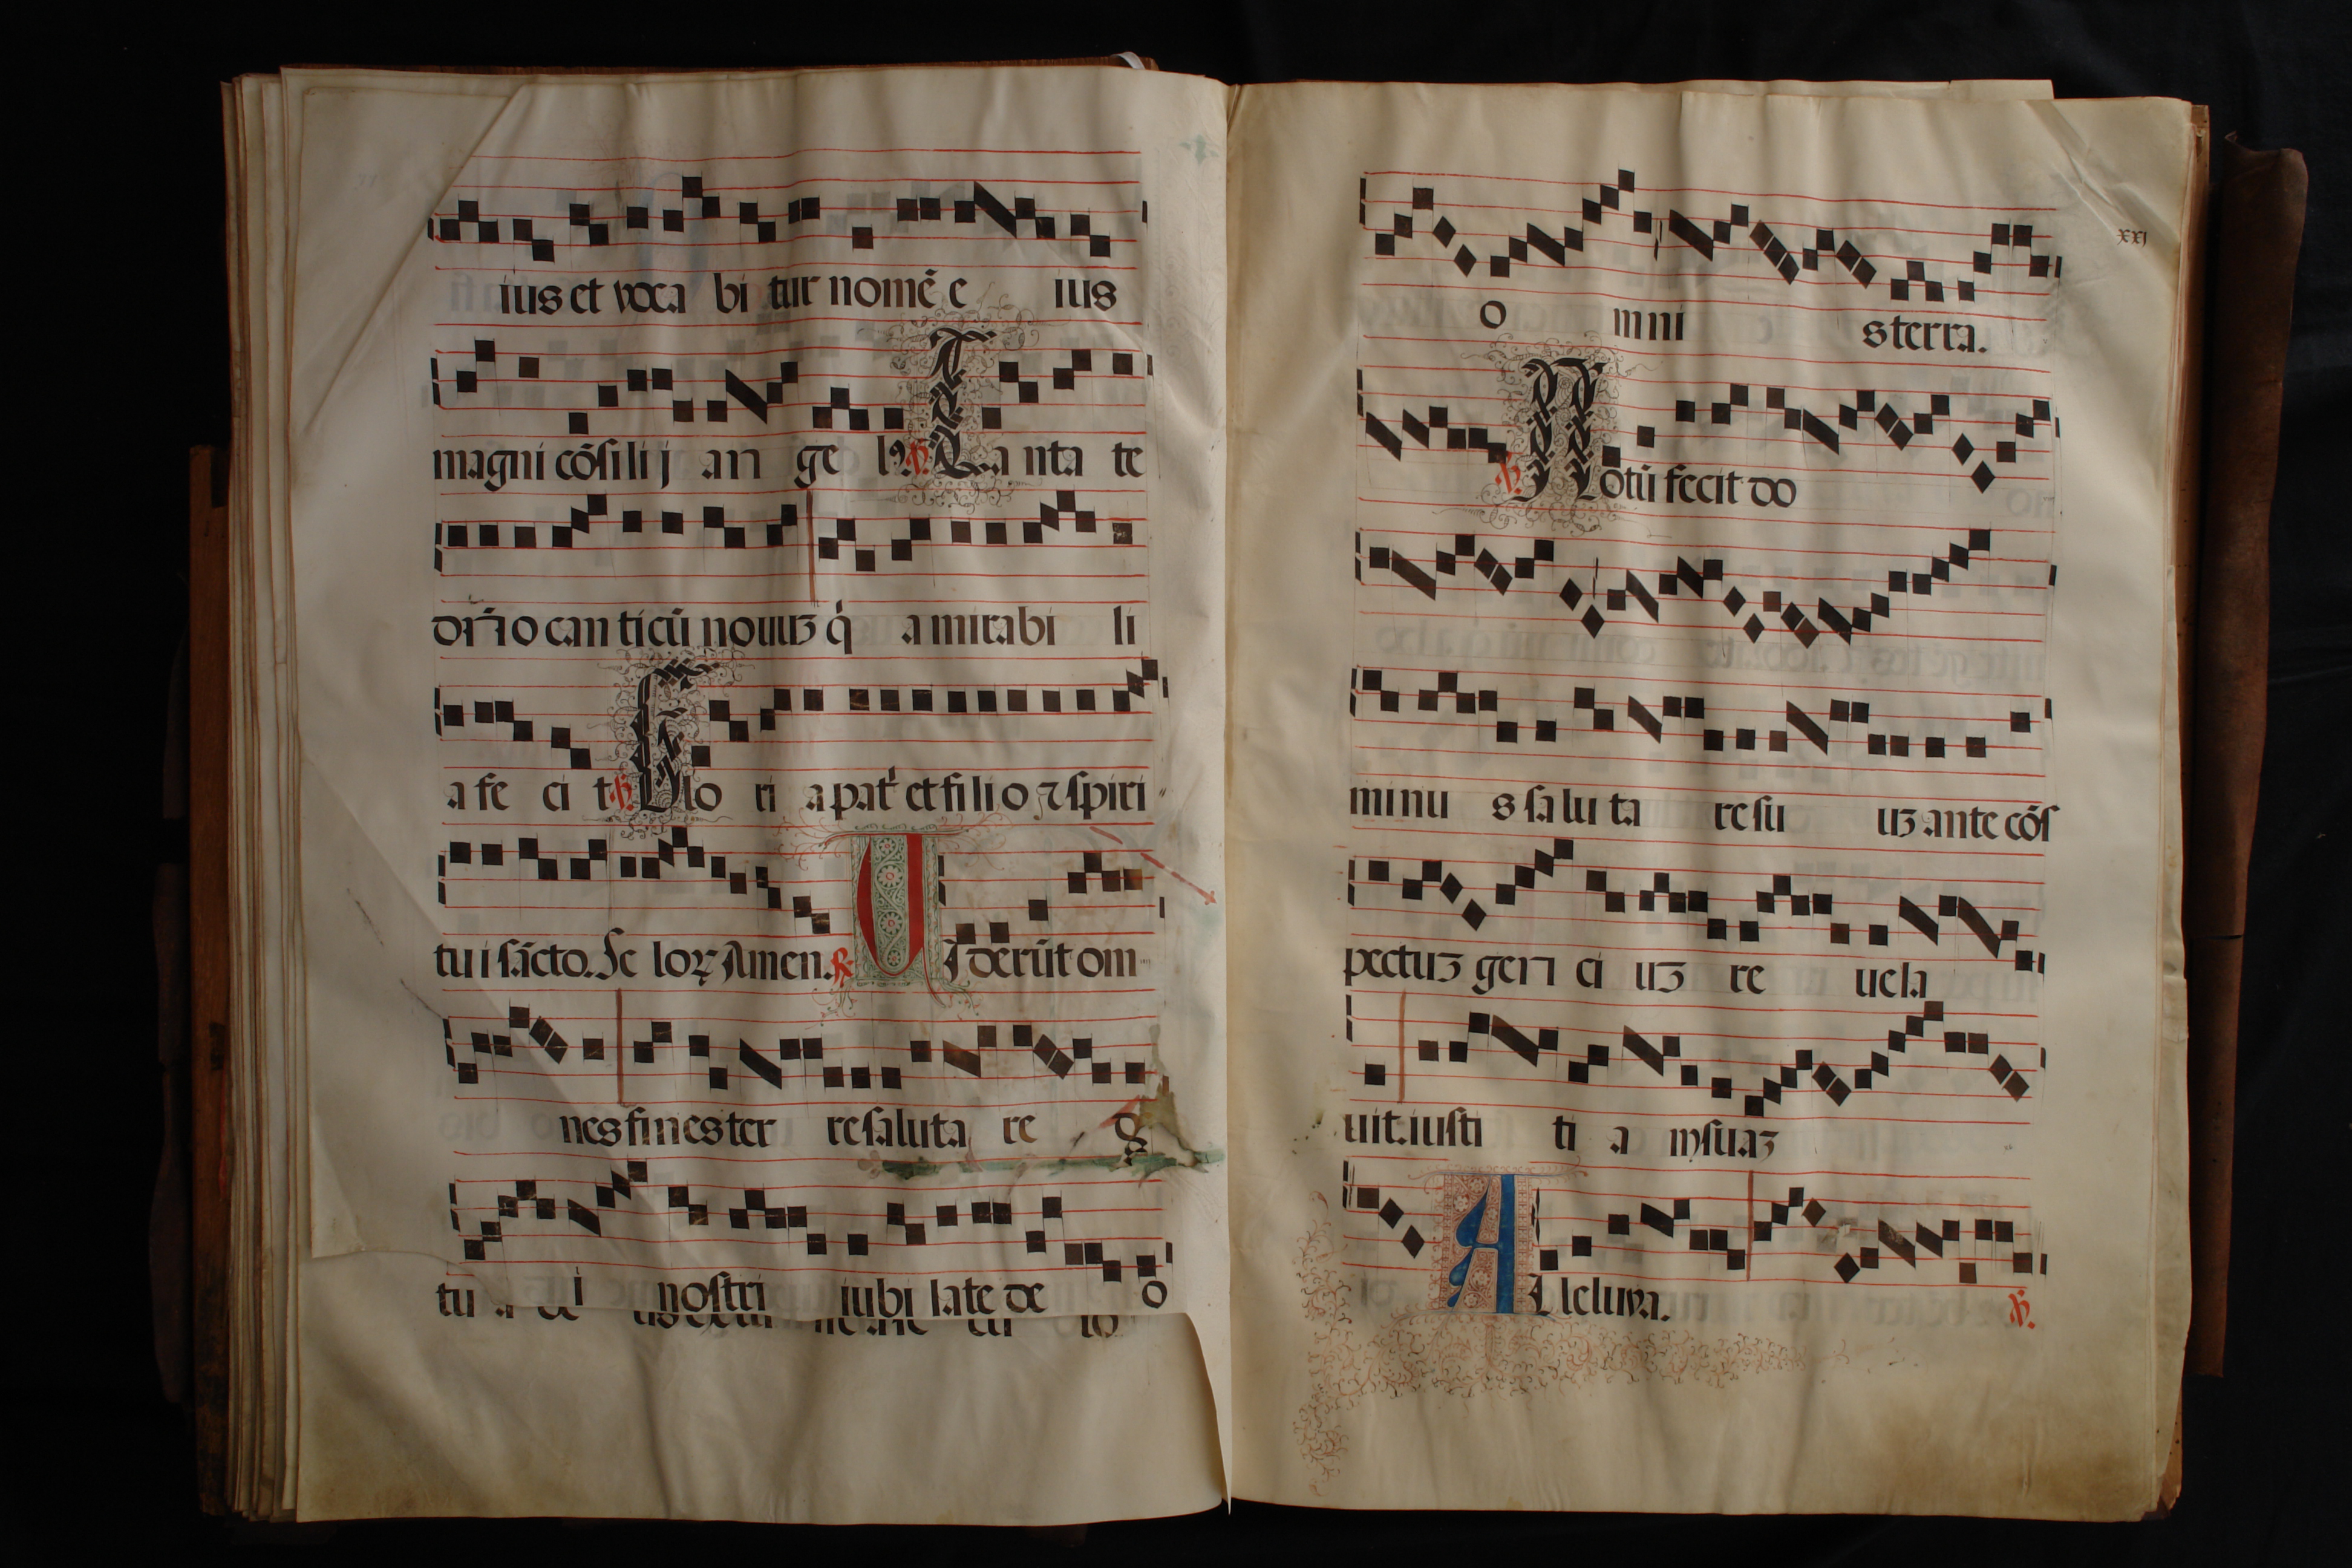 ius et voca bi tur nomē e ius
magni cōsi li j an ge lꝰ ℣ Can ta te
dñ̄o can ticū nouuꝫ q̇ a mirabi li
a fe ci t ℣ Glo ri a pat̄ et fi li o ⁊ spiri
tu i sācto. Se loꝝ Amen. ℟ Uiderūt om
nes fines ter re saluta re
tu i nostri iubi late de o
xxj
o mni e s terra.
℣ Notū fecit do
minu s sa lu ta re su uꝫ ante cōs
pectuꝫ gen ci uꝫ re uela
uit. iusti ti a m suaꝫ
A lleluya. ℣.